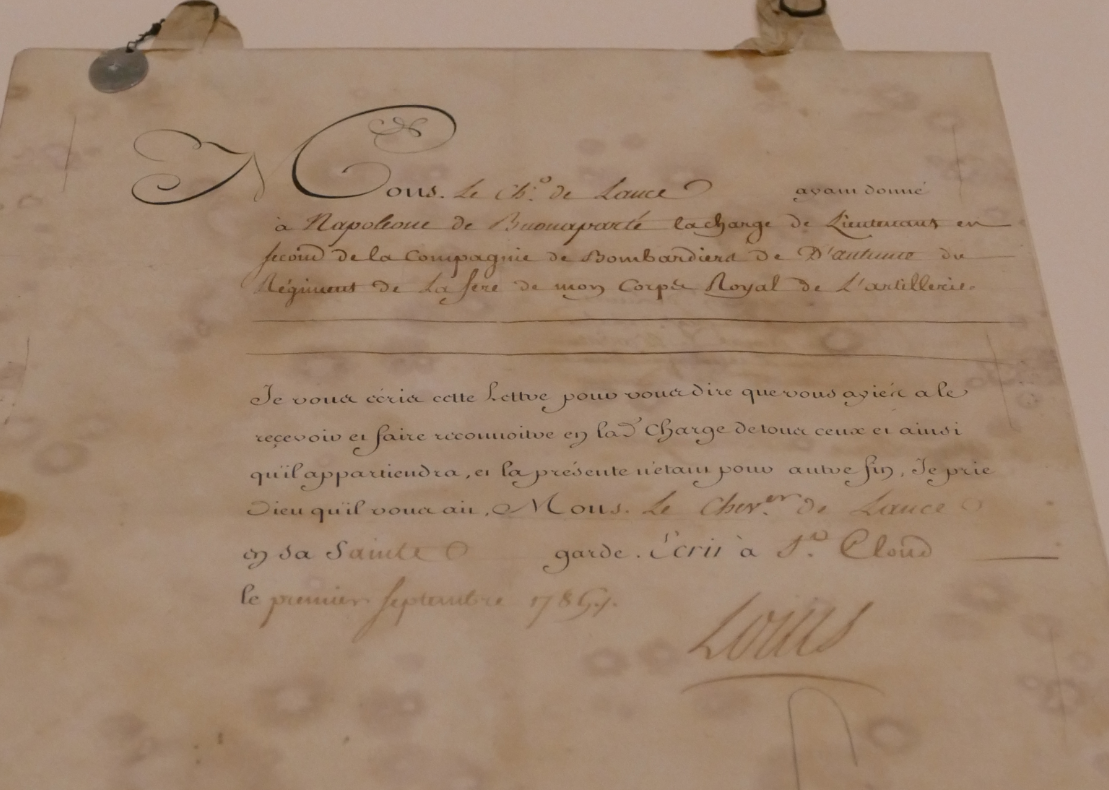 Mons. Le Ch.r de Lance ayant donné
à Napoleone de Buonaparté la charge de Lieutenant en
second de la Compagnie de Bombardiers de D'autume du
Régiment de La fere de mon Corps Royal de L'artillerie.
Je vous écris cette Lettre pour vous dire que vous ayiés a le
recevoir et faire reconnoitre en lad.e Charge de tous ceux et ainsi
qu'il appartiendra, et la présente n'étant pour autre fin, Je prie
Dieu qu'il vous ait, Mons. Le Chev.er de Lance
en sa Sainte garde. Écrit à S.t Cloud
le premier septembre 1785.
Louis